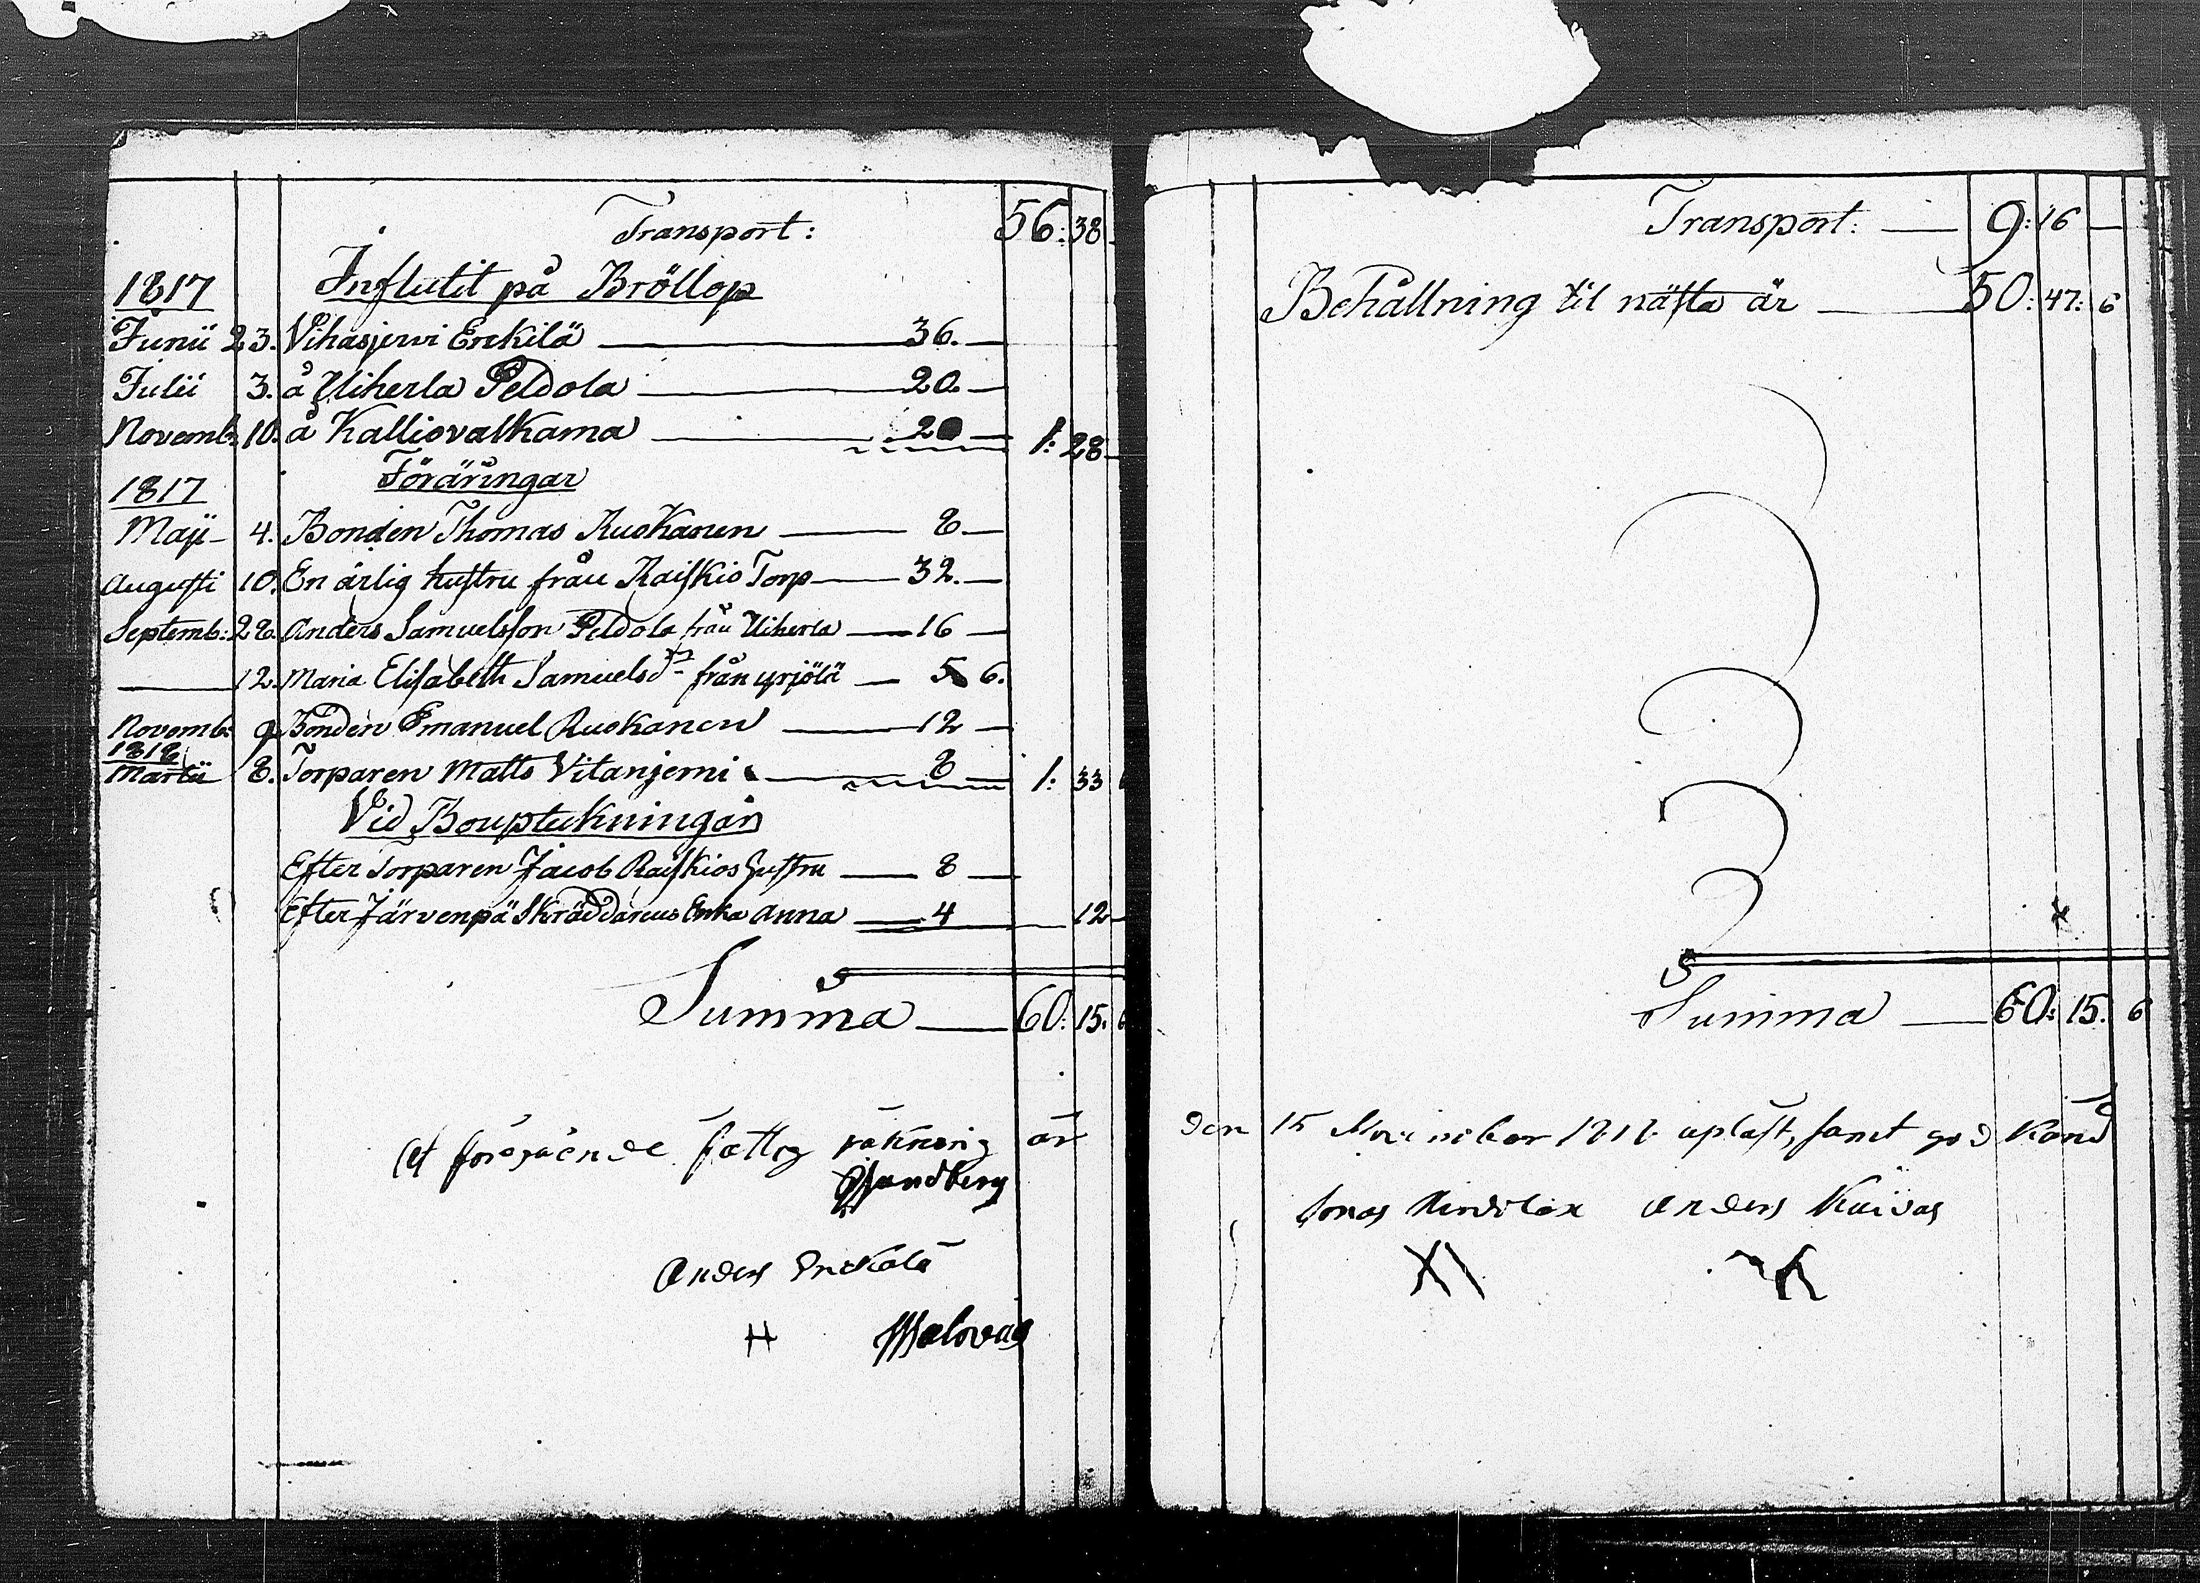 Transport: 56: 38 —
1817 Influtit på Bröllop
Junii 23. Vihasjervi Erckilä — 36. —
Julii 3. å Uiherla Peldola — 20. —
Novemb: 10. å Kalliovalkama — 20 — 1: 28 —
1817 Föräringar
Maji — 4. Bonden Thomas Ruokanen — 8 —
Augusti 10. En ärlig hustru från Raiskio Torp — 32. —
Septemb: 28. Anders Samuelsson Peldola från Uiherla — 16 —
— 12. Maria Elisabeth Samuelsdr från yrjölä — 5 6.
Novemb: 9. Bonden Emanuel Ruokanen — 12 —
1818
Martii 8. Torparen Matts Vitanjemi — 8 — 1: 33 6
Vid Boupteckningar
Efter Torparen Jacob Raiskios hustru — 8 —
Efter Järvenpä Skräddarens Enka Anna — 4 12 —
Summa — 60: 15: 6
Atföregående fattig räkning är
Anders Erckälä
H
Transport: — 9: 16 —
Behållning til nästa år — 50: 47: 6
Summa — 60: 15. 6
den 15 November 1818 upläst, samt god känd
Jonas Anders